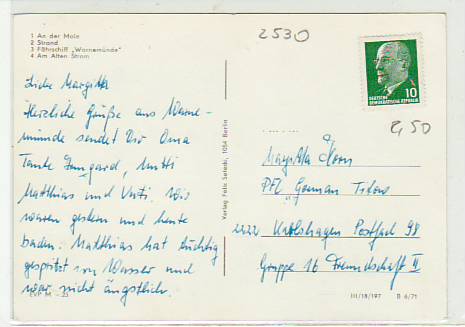 1 An der Mole
2 Strand
3 Fährschiff „Warnemünde"
4 Am Alten Strom
2530
10
DEUTSCHE
DEMOKRATISCHE REPUBLIK
2,50
Liebe Margitta
Herzliche Grüße aus Warne-
münde sendet Dir Oma
Tante Irmgard, Mutti
Matthias und Uuti. Wir
waren gestern und heute
baden. Matthias hat tüchtig
gespritzt von Wasser und
war nicht ängstlich.
Verlag Felix Setecki, 1054 Berlin
An
Margitta Horn
PFL German Titow
2222 Karlshagen Postfach 98
Gruppe 16 Freundschaft II
EVP M -,25
III/18/197 B 6/71